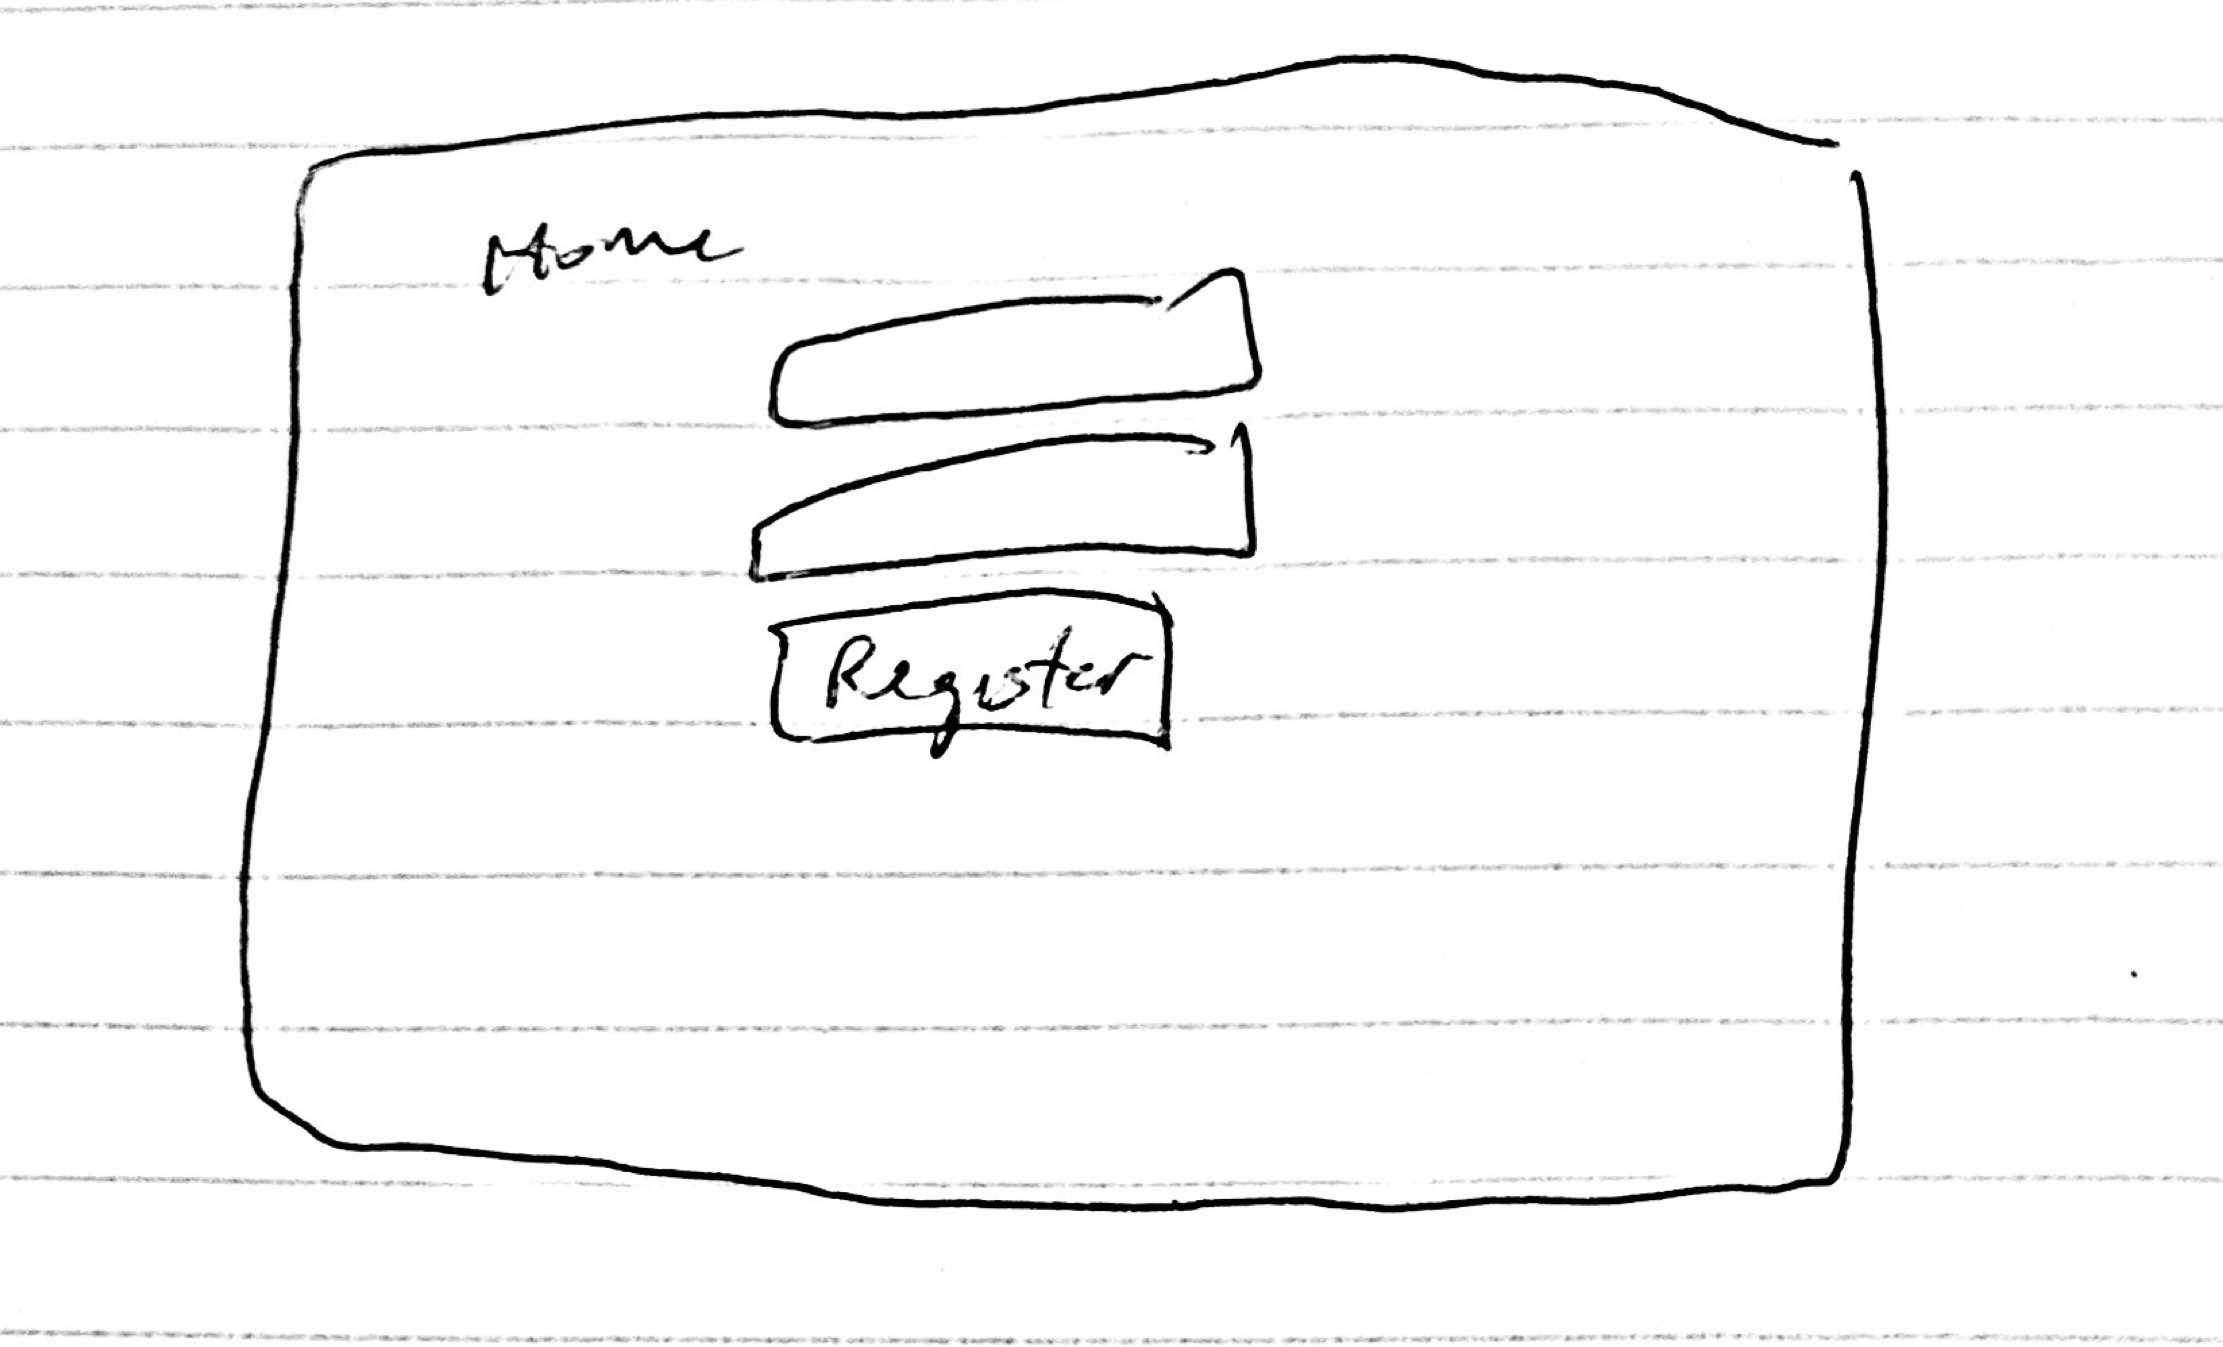 Home
Register